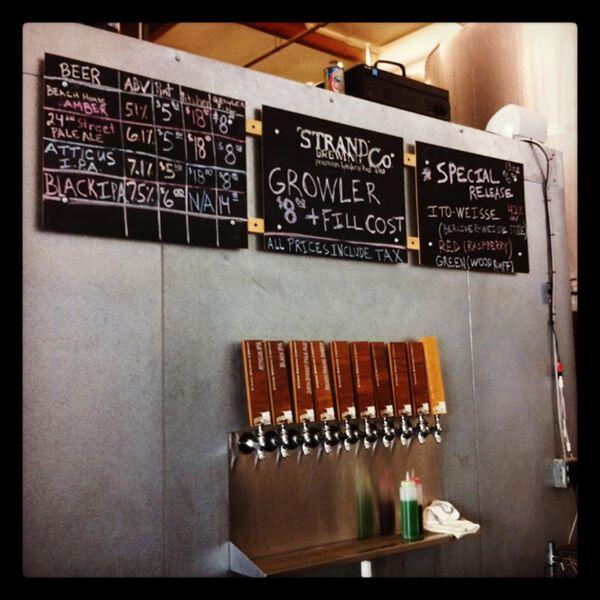 BEER ABV Pint Pitcher GROWLER
BEACH HOUSE
AMBER 5.1% $5 $18 $8
24TH Street
PALE ALE 6.1% $5 $18 $8
ATTICUS
I.P.A. 7.1% $5 $18 $8
BLACK IPA 7.5% $6 N/A
STRAND
BREWING Co
GROWLER
$8 + FILL COST
ALL PRICES INCLUDE TAX
SPECIAL
RELEASE
ITO-WEISSE
(BERLINER-WEISSE STYLE)
RED (RASPBERRY)
GREEN (WOODRUFF)
ATTICUS IPA
BLACK IPA
24TH STREET PALE ALE
BEACH HOUSE AMBER